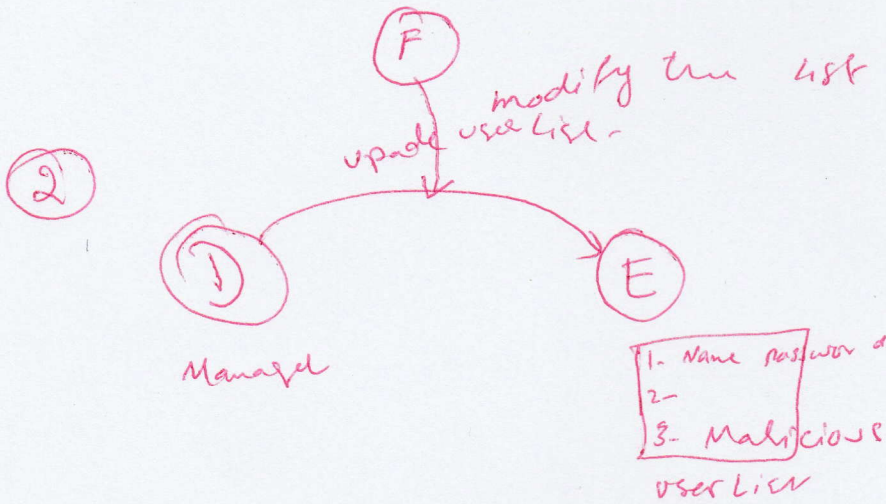 F
modify the list
upade user List-
2
D
E
Manager
1- Name password
2-
3- Malicious
user List